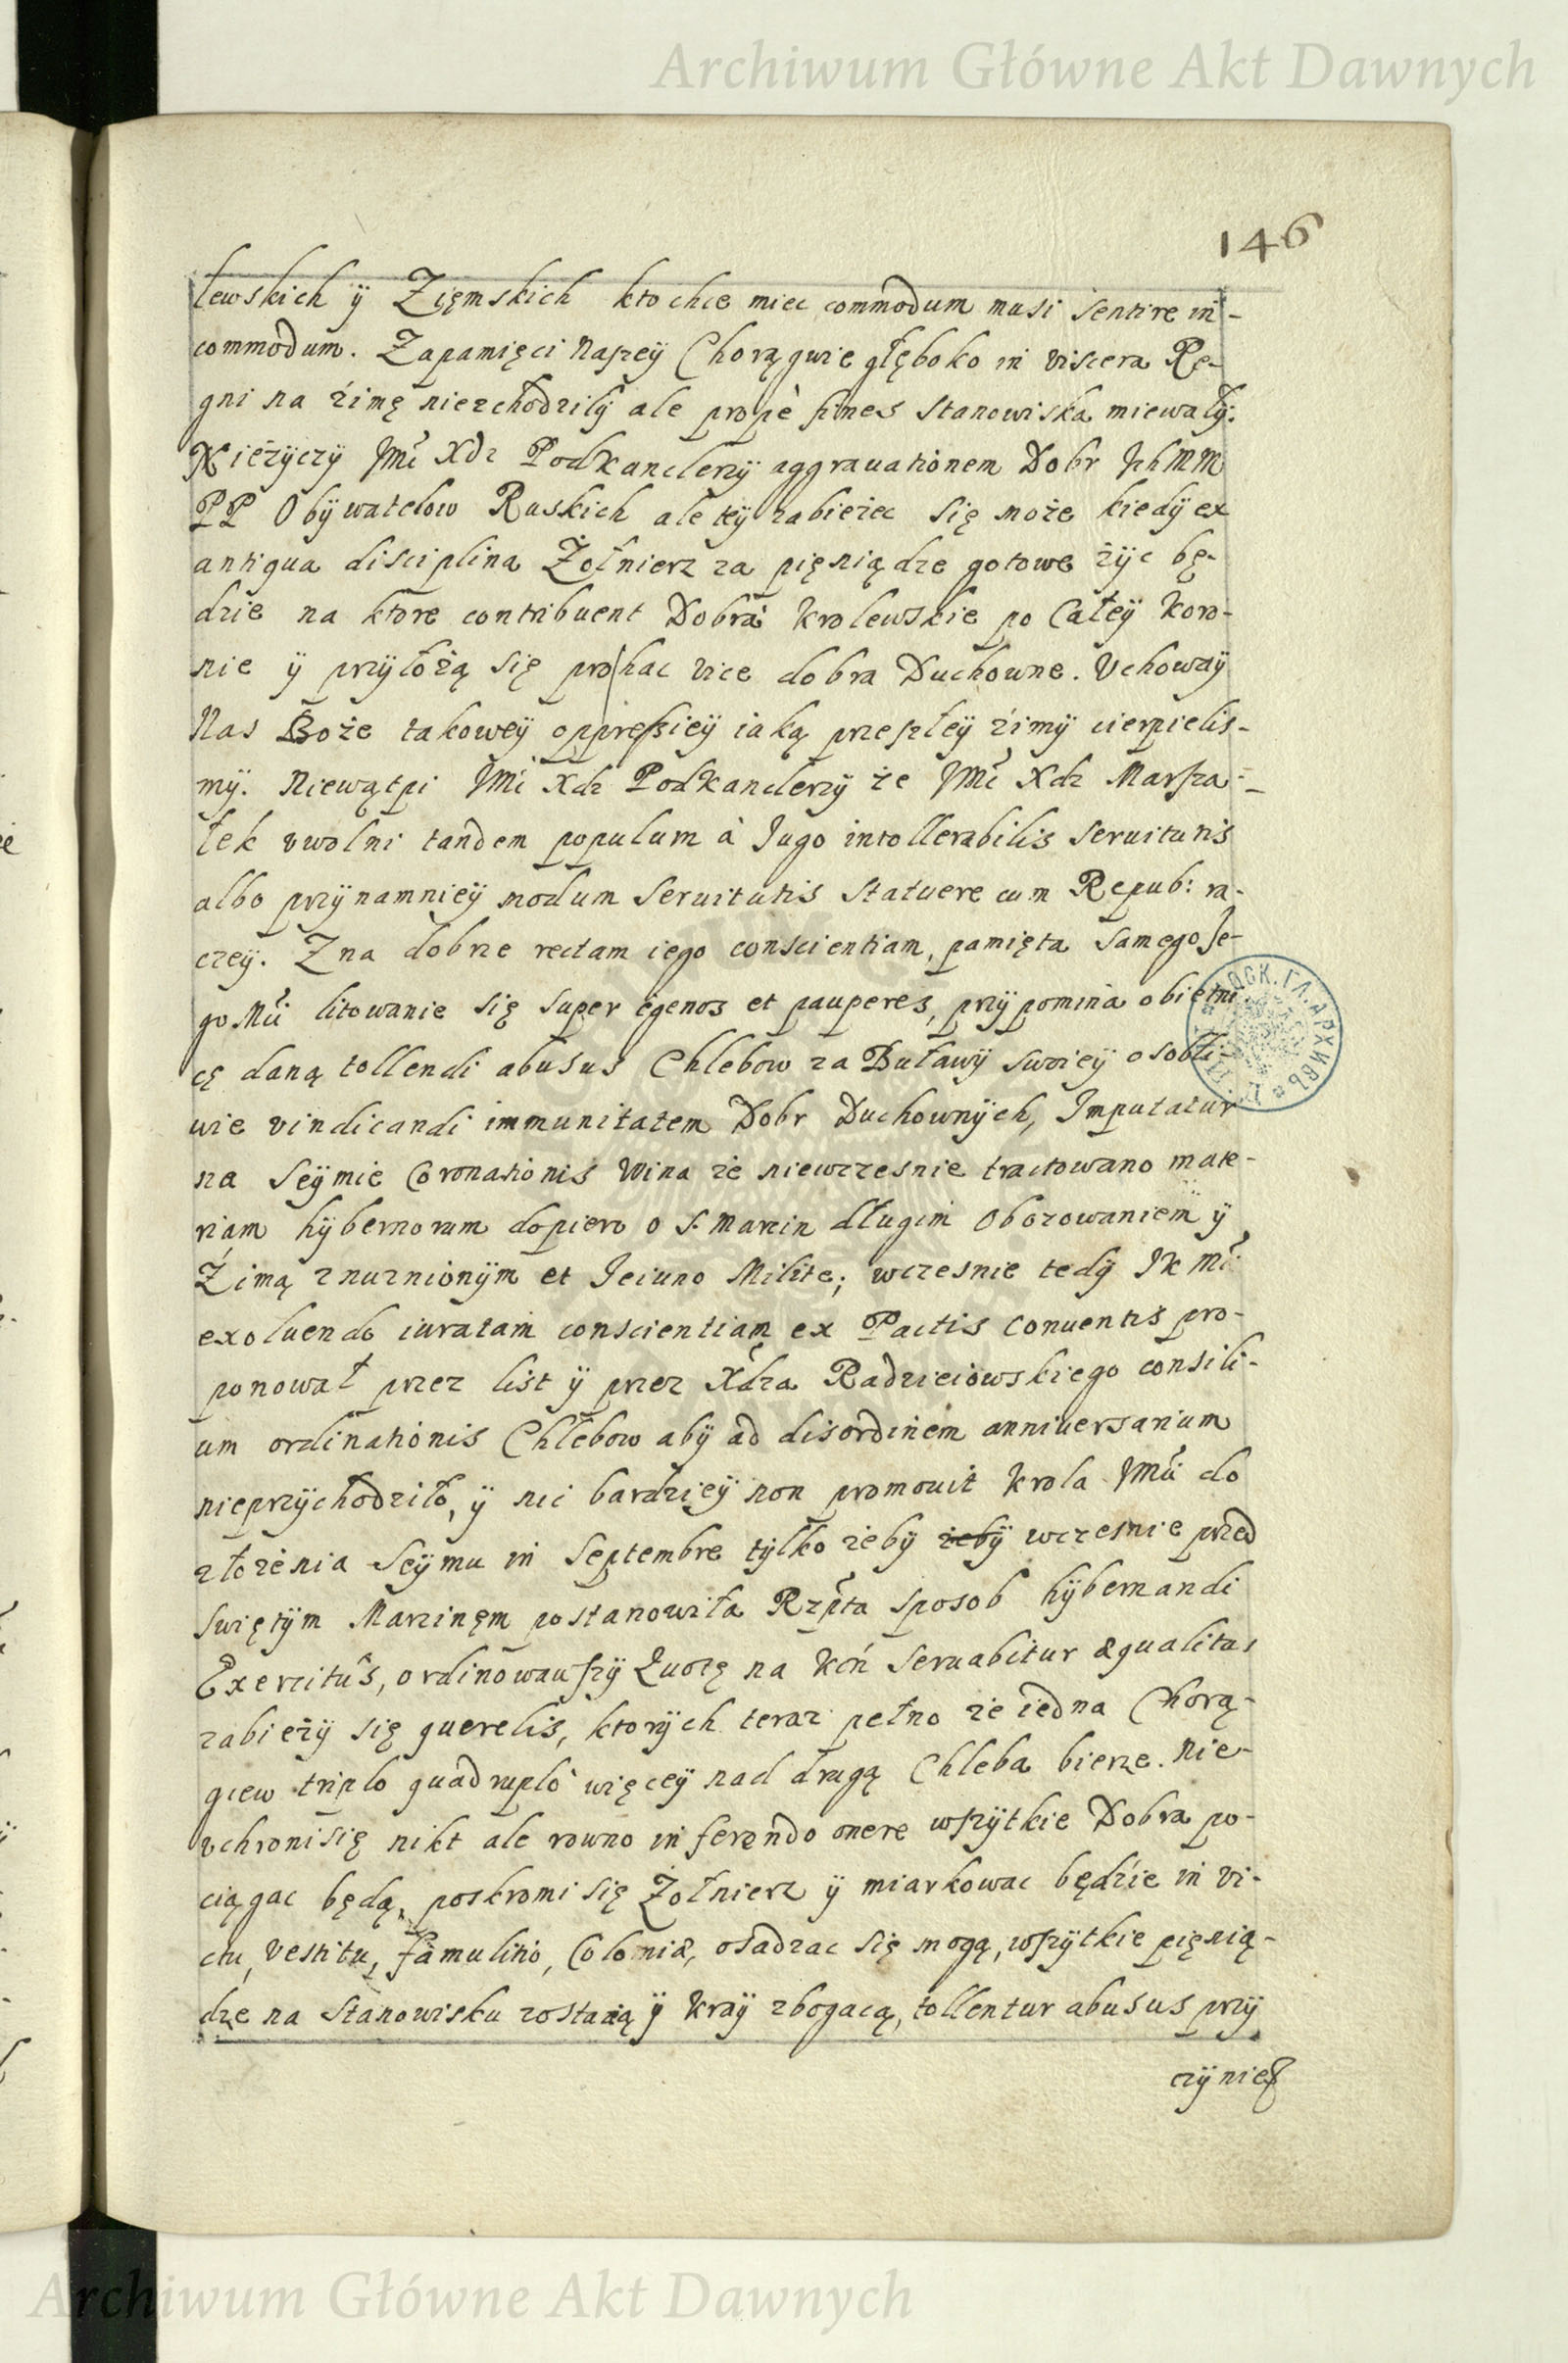 Archiwum Główne Akt Dawnych
146
lewskich ÿ Zięmskich kto chce miec commodum musi sentire in-
commodum. Zapamięci Naszeÿ Chorągwie głęboko in viscera Re-
gni na źimę niezchodziłÿ ale propè fines Stanowiska miewałÿ.
Nieżÿczÿ JMć Xdz Podkanclerzÿ aggrauationem Dobr Ichmm
PP Obÿwatelow Ruskich ale teÿ zabieżec się może kiedÿ ex
antiqua disciplina Żołnierz za pięniądze gotowe żÿc bę-
dzie na ktore contribuent Dobra Krolewskie po Całeÿ Koro-
nie ÿ przÿłożą się pro hac vice dobra Duchowne. Vchowaÿ
Nas Boże takoweÿ oppressieÿ iaką przeszłeÿ źimÿ cierpielis-
mÿ. Niewątpi JMć Xdz Podkanclerzÿ że JMć Xdz Marsza-
łek vwolni tandem populum à Jugo intollerabilis seruitutis
albo przÿnamnieÿ modum seruitutis statuere cum Repub: ra-
czeÿ. Zna dobrze rectam iego conscientiam, pamięta samego Je-
go Mći litowanie się super egenos et pauperes, przÿpomina obietni
cę daną tollendi abusus Chlebow za Buławÿ swoieÿ osobli-
wie vindicandi immunitatem Dobr Duchownÿch, Imputatur
na Seÿmie Coronationis Wina że niewczesnie tractowano mate-
riam hÿbernorum dopiero o S. Marcin długim Obozowaniem ÿ
Źimą znużnionÿm et Jeiuno Milite; wczesnie tedÿ JK Mć
exoluendo iuratam conscientiam ex Pactis Conuentis pro-
ponował przez list ÿ przez Xdza Radzieiowskiego consili-
um ordinationis Chlebow abÿ ad disordinem anniuersarium
nieprzÿchodziło, ÿ nic bardzieÿ non promouit Krola JMći do
złożenia Seÿmu in Septembre tÿlko żebÿ żebÿ wczesnie przed
swiętÿm Marcinęm postanowiła Rzpta sposob hÿbernandi
Exercitûs, ordinowawszÿ Quotę na Koń seruabitur æqualitas
zabieżÿ się querelis, ktorÿch teraz pełno że iedna Chorą-
giew triplo quadruplo więceÿ nad drugą Chleba bierze. Nie-
vchroni się nikt ale rowno in ferendo onere wszÿtkie Dobra po-
ciągac będą, poskromi się Żołnierz ÿ miarkowac będzie in vi-
ctu, vestitu, famulitio, Coloniæ, osadzac się mogą, wszÿtkie pięnią-
dze na Stanowisku zostaią ÿ Kraÿ zbogacą, tollentur abusus przÿ
czÿnie
Archiwum Główne Akt Dawnych